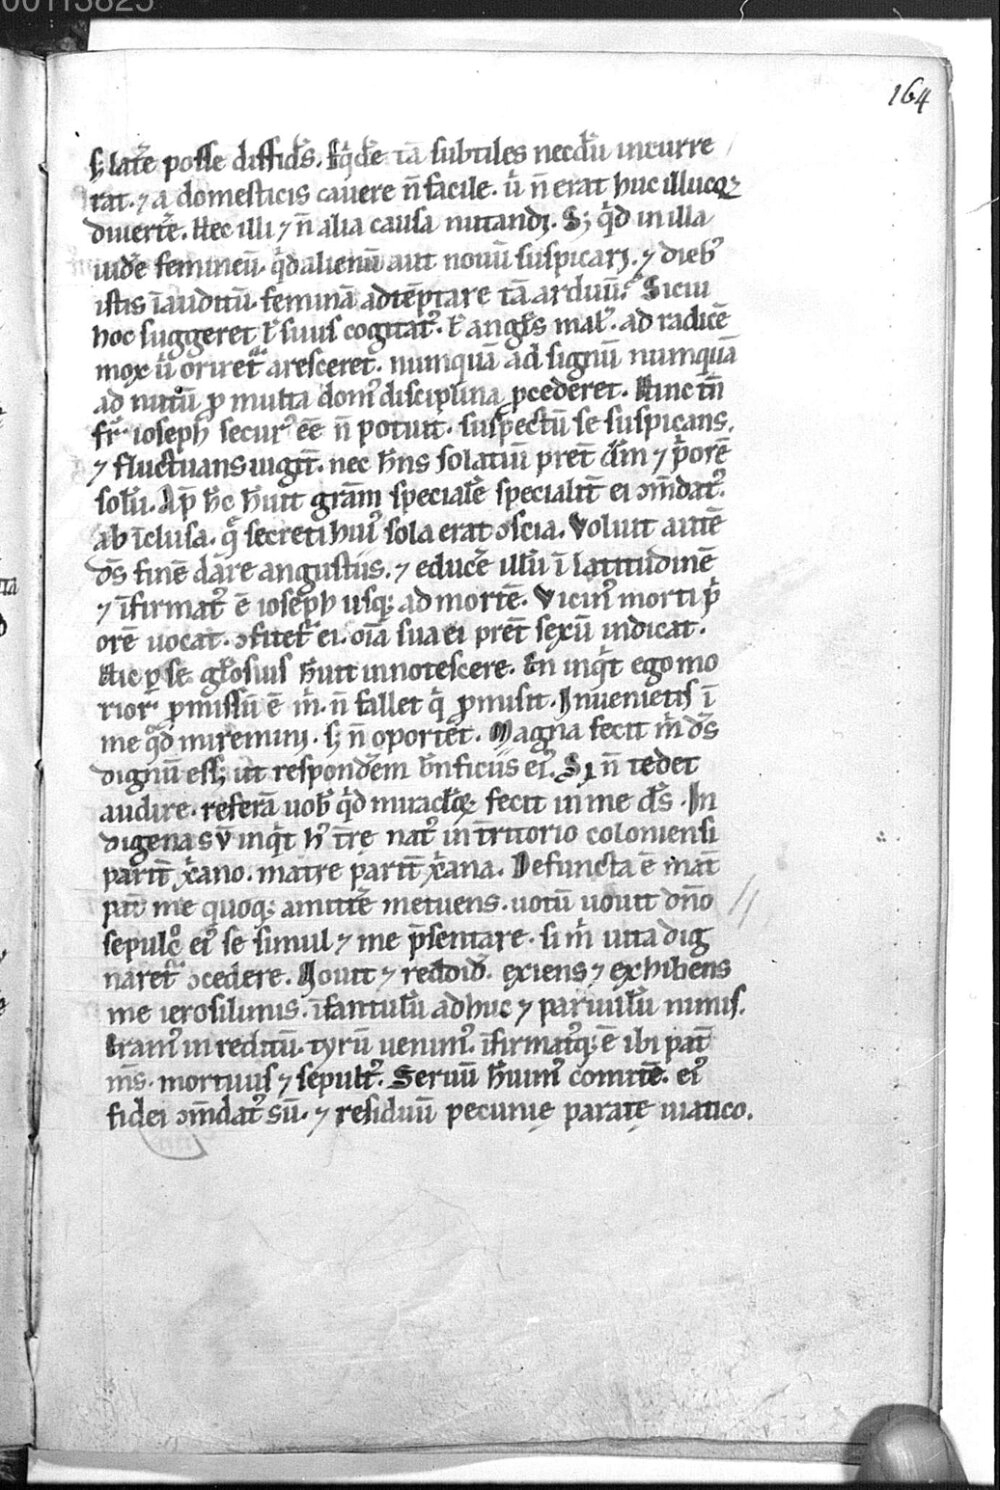 00113823
164
s; latē posse diffidēs. Eqͥdē tā subtiles necdū incurre
rat. ⁊ a domesticis cauere n̄ facile. ꝟ n̄ erat huc illucq;
diuertē. Hec illi ⁊ n̄ alia causa nutandi. S; qͥd in illa
uidē femineū. qͥd alienū aut nouū suspicari. ⁊ dieb᷒
istis īauditū feminā adtēptare tā arduū. Siciu
hoc suggeret ł suus cogitat᷒. ł angłs mal᷒. ad radicē
mox ū oriret᷑ aresceret. numquā ad signū numquā
ad nutū ꝓ multa domᷤ disciplina ꝓcederet. Hinc tn̄
fr̄ ioseph secur᷒ eē n̄ potuit. suspectū se suspicans.
⁊ fluctuans iugit̄. nec hn̄s solatiū pret̄ dn̄m ⁊ pͥorē
solū. Ap̄ hc̄ huit grām specialē specialit̄ ei ↄm̄dat᷒.
ab īclusa. q̄ secreti hui᷒ sola erat ↄscia. Voluit autē
ds̄ finē dare angustiis. ⁊ educē illū ī latitudinē
⁊ īfirmat᷒ ē ioseph usq; ad mortē. Vicin᷒ morti pͥ
orē uocat. ↄfitet᷑ ei. oīa sua ei pret̄ sexū indicat.
Hic ꝑ se głosius huit innotescere. En inqͥt ego mo
rior. ꝓmissū ē m̄. n̄ fallet qͥ ꝓmisit. Inuenietis ī
me qd̄ miremini. s; n̄ oportet. Magna fecit m̄ ds̄
dignū ess; ut respondēm bn̄ficiis ei᷒. Si n̄ tedet
audire. referā uob᷒ qͥd miraclꝝ fecit in me ds̄. In
digena sū inqͥt h᷒ tr̄e nat᷒ in tr̄ritorio coloniensi
patͤ x͞ano. matre parit̄ x͞ana. Defuncta ē mat̄
pat̄ me quoq; amittē metuens. uotū uouit dn̄o
sepulcͦ ei᷒ se simul ⁊ me p̄sentare. si m̄ uita dig
naret᷑ ↄcedere. Vouit ⁊ reddid̄. exiens ⁊ exhibens
me ierosilimis. īfantulū adhuc ⁊ paruulū nimis.
Eram᷒ in reditū. tyrū uenim᷒. īfirmat᷒q; ē ibi pat̄
ms̄. mortuus ⁊ sepult᷒. Seruū huim᷒ comitē. ei᷒
fidei ↄm̄dat᷒ sū. ⁊ residuū pecunię paratę uiatico.